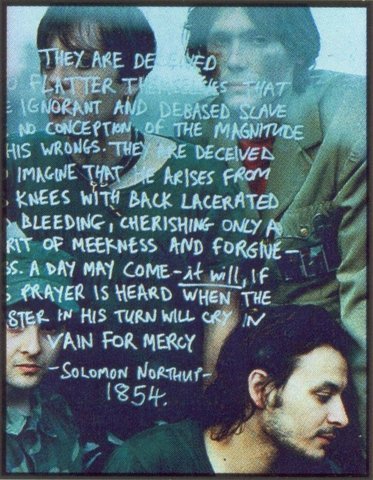 THEY ARE DECEIVED
FLATTER THEMSELVES THAT
IGNORANT AND DEBASED SLAVE
NO CONCEPTION, OF THE MAGNITUDE
HIS WRONGS. THEY ARE DECEIVED
IMAGINE THAT HE ARISES FROM
KNEES WITH BACK LACERATED
BLEEDING, CHERISHING ONLY A
RIT OF MEEKNESS AND FORGIVE-
SS. A DAY MAY COME - it will, IF
PRAYER IS HEARD WHEN THE
STER IN HIS TURN WILL CRY IN
VAIN FOR MERCY
- SOLOMON NORTHUP -
1854.